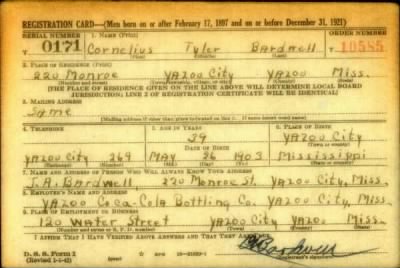 REGISTRATION CARD—(Men born on or after February 17, 1897 and on or before December 31, 1921)
SERIAL NUMBER 1. NAME (Print) ORDER NUMBER
T 0171 Cornelius Tyler Bardwell T 10585
(First) (Middle) (Last)
2. PLACE OF RESIDENCE (Print)
220 Monroe YAZOO City YAZOO Miss.
(Number and street) (Town, township, village, or city) (County) (State)
[THE PLACE OF RESIDENCE GIVEN ON THE LINE ABOVE WILL DETERMINE LOCAL BOARD
JURISDICTION; LINE 2 OF REGISTRATION CERTIFICATE WILL BE IDENTICAL]
3. MAILING ADDRESS
Same
(Mailing address if other than place indicated on line 2. If same insert word same)
4. TELEPHONE 5. AGE IN YEARS 6. PLACE OF BIRTH
39 YAZOO City
DATE OF BIRTH (Town or county)
YAZOO City 269 MAY 26 1903 Mississippi
(Exchange) (Number) (Mo.) (Day) (Yr.) (State or country)
7. NAME AND ADDRESS OF PERSON WHO WILL ALWAYS KNOW YOUR ADDRESS
J.A. Bardwell 220 Monroe St. YAZOO City, Miss.
8. EMPLOYER'S NAME AND ADDRESS
YAZOO Coca-Cola Bottling Co. YAZOO City, Miss.
9. PLACE OF EMPLOYMENT OR BUSINESS
120 Water Street YAZOO City YAZOO Miss.
(Number and street or R. F. D. number) (Town) (County) (State)
I AFFIRM THAT I HAVE VERIFIED ABOVE ANSWERS AND THAT THEY ARE TRUE.
Bardwell
D. S. S. Form 1
(Revised 1-1-42) (Registrant's signature)